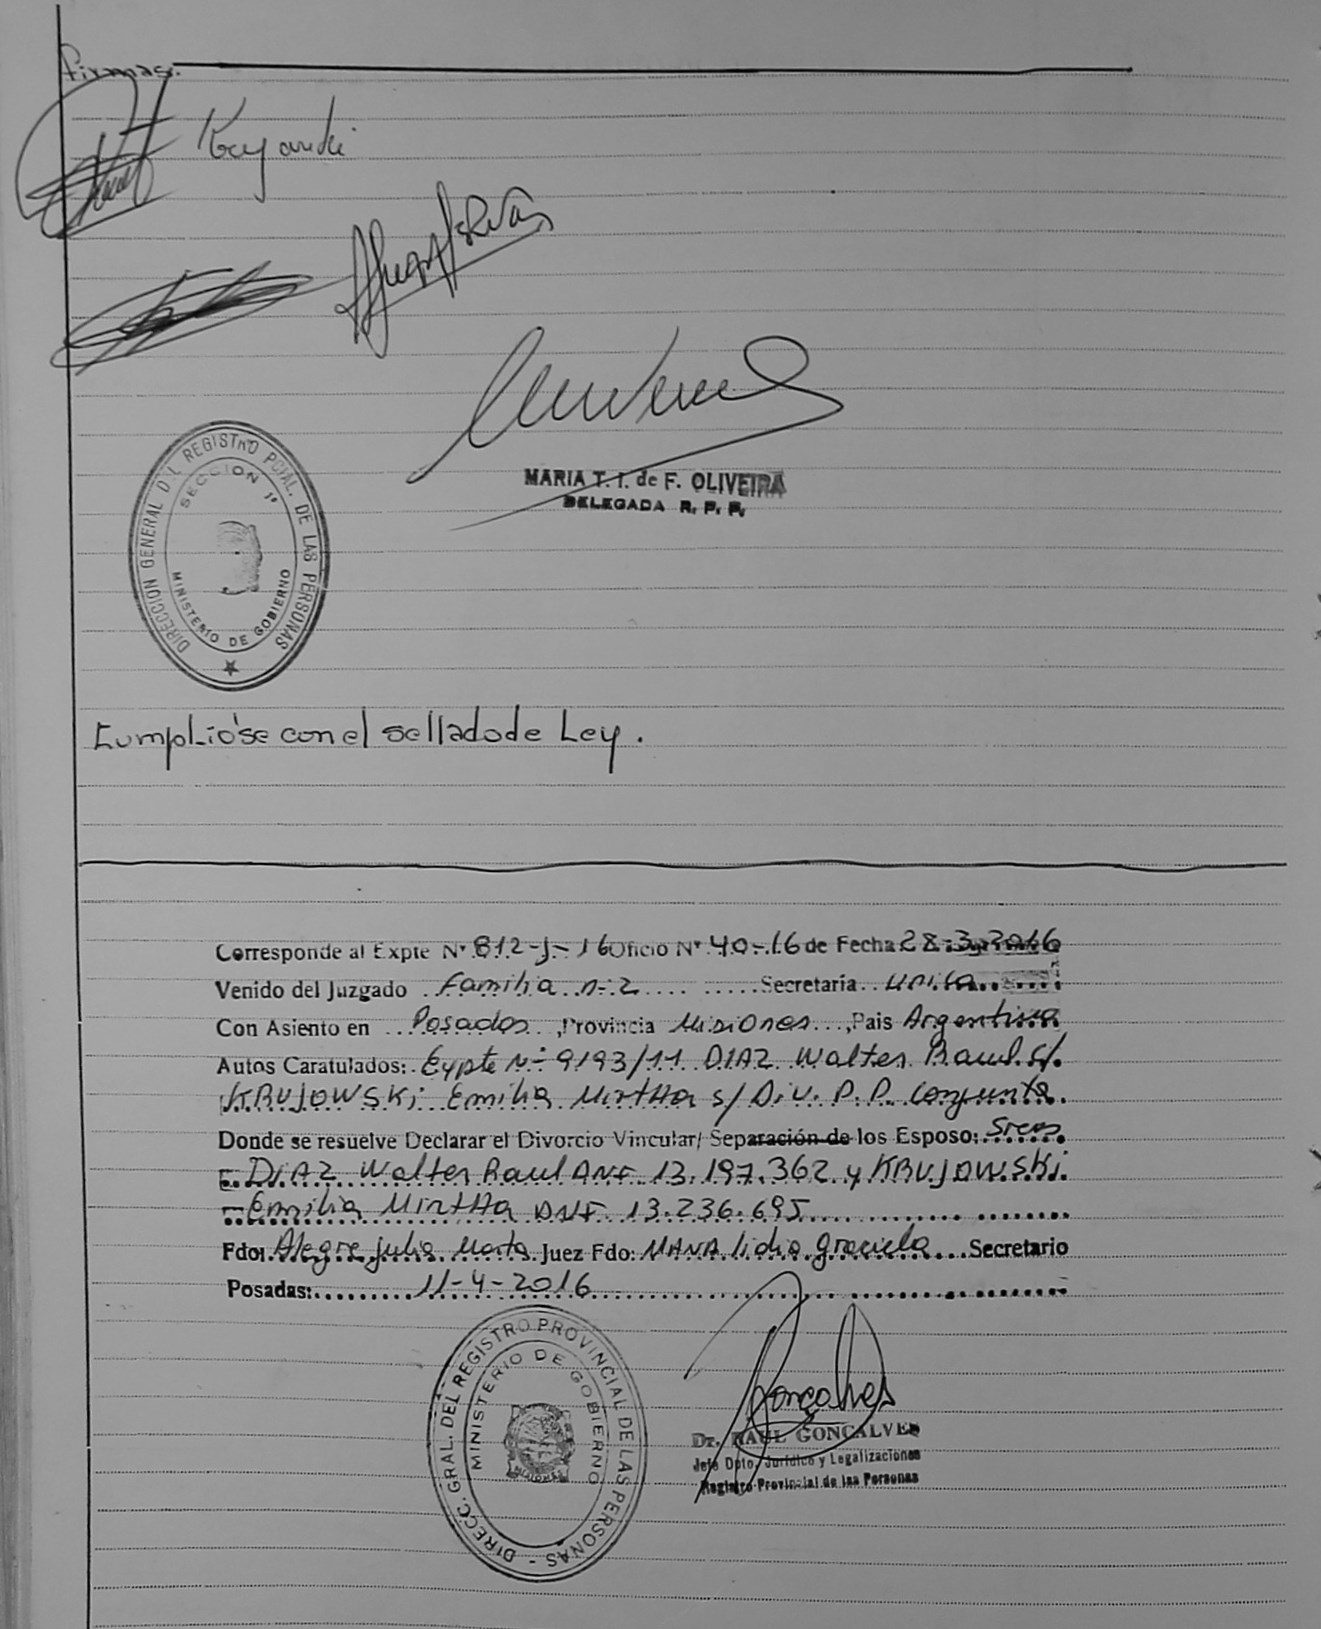 firmas:
MARIA T. I. de F. OLIVEIRA
DELEGADA R. P. P.
DIRECCION GENERAL DEL REGISTRO PCIAL. DE LAS PERSONAS
SECCION 1ª
MINISTERIO DE GOBIERNO
Cumplióse con el sellado de Ley.
Corresponde al Expte Nº 812-J-16 Oficio Nº 40-16 de Fecha 28-3-2016
Venido del Juzgado Familia n-2 Secretaría unica
Con Asiento en Posadas, Provincia Misiones, Pais Argentina
Autos Caratulados: Expte Nº 9193/11 DIAZ Walter Raul S/.
KRUJOWSKi Emilia Mirtha s/ Div. P. P. Conjunta.
Donde se resuelve Declarar el Divorcio Vincular/ Separación de los Esposo: Sres
- DIAZ Walter Raul DNI 13.197.362 y KRUJOWSKi
- Emilia MirtHa DNI 13.236.695
Fdo: Alegre Julia Marta Juez Fdo: MANA lidia graciela Secretario
Posadas: 11-4-2016
DIRECC. GRAL. DEL REGISTRO PROVINCIAL DE LAS PERSONAS -
MINISTERIO DE GOBIERNO
MISIONES
Gonçalves
Dr. RAUL GONCALVES
Jefe Dpto. Jurídico y Legalizaciones
Registro Provincial de las Personas